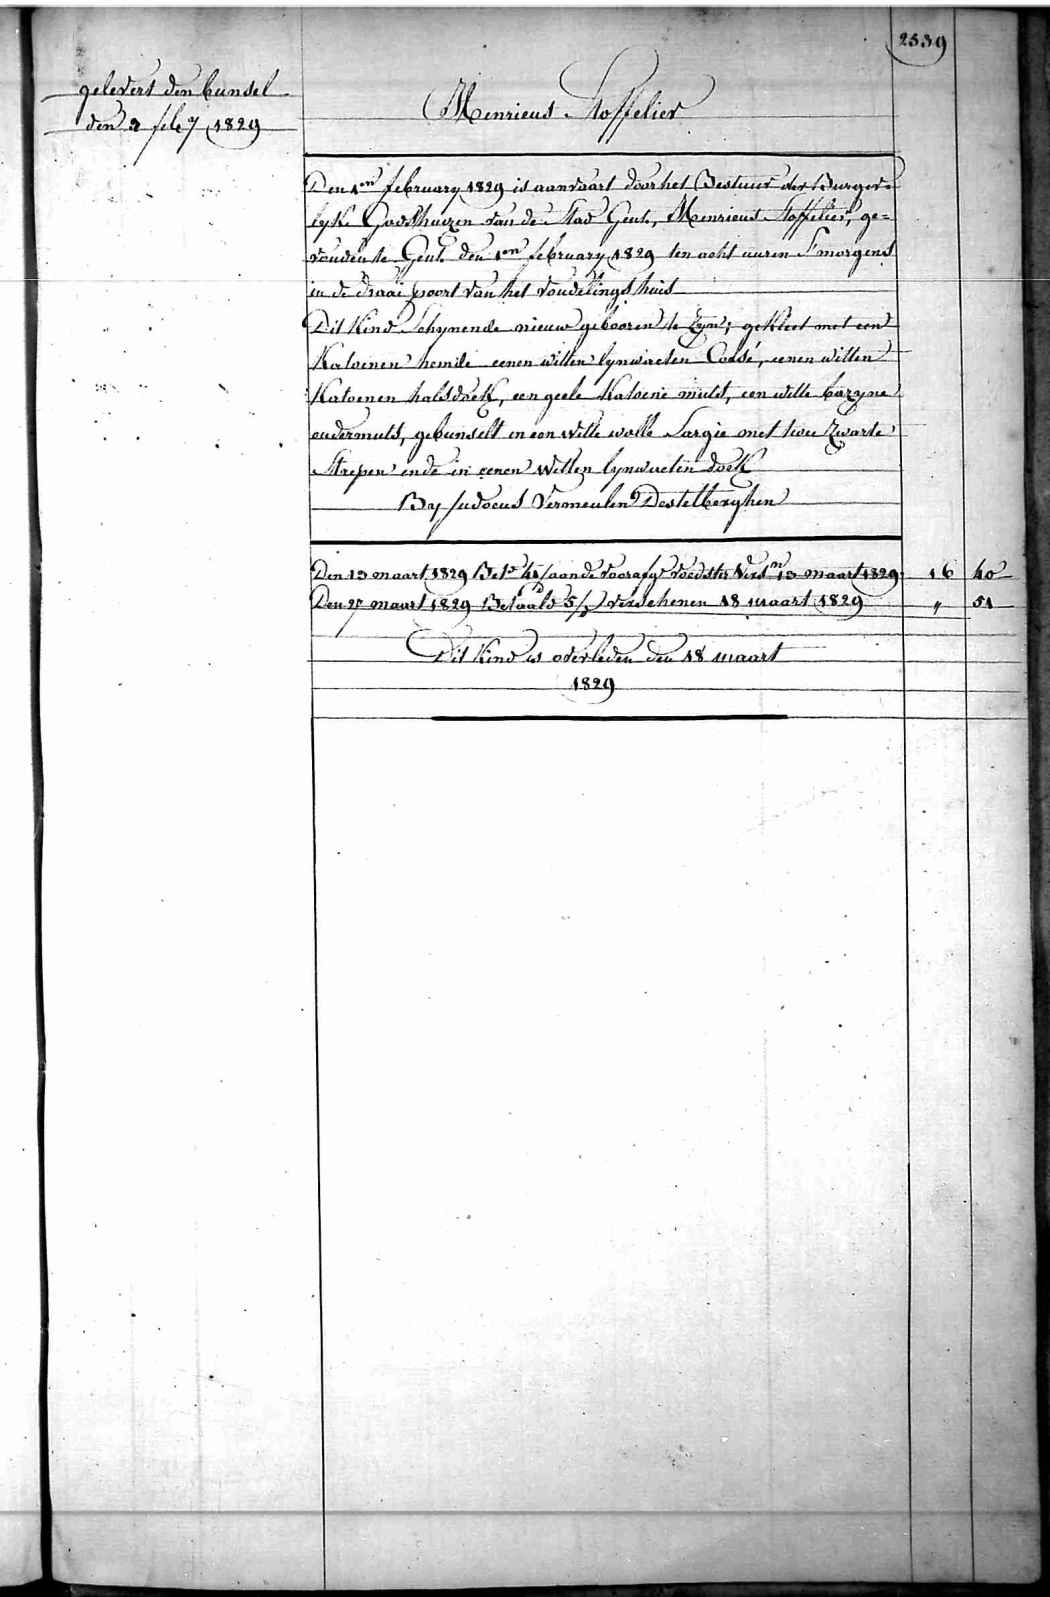 2539
gelevert den bunsel
den 2 feb 7 1829
Henricus Stoffelier
Den 1en february 1829 is aanvaart door het Bestuur der Burger=
lyke Godshuizen van de Stad Gent, Henricus Stoffelier, ge=
vonden te Gent den 1en february 1829 ten acht uuren S'morgens
in de draai poort van het vondelingshuis
Dit Kind Schynende nieuw gebooren te zyn, gekleet met een
Katoenen hemde eenen witten lynwaeten Corsé, eenen witten
Katoenen halsdoek, een geele Katoene muts, een witte bazyne
ondermuts, gebunselt in een witte wolle Sargie met twee zwarte
Strepen ende in eenen witten lynwaeten doek
By Judocus Vermeulen Destelberghen
Den 13 maart 1829 Bet. aan de voorafg. voedster Verst. 13 maart 1829 16 40
Den 27 maart 1829 Betaald 5/ verschenen 18 maart 1829 " 51
Dit Kind is overleden den 18 maart
1829